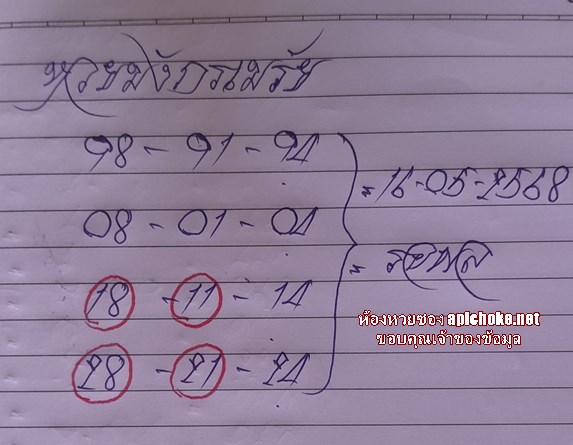 98 - 91 - 94
08 - 01 - 04
18 - 11 - 14
28 - 21 - 24
= 16-05-2568
=
ห้องหวยซอง apichoke.net
ขอบคุณเจ้าของข้อมูล